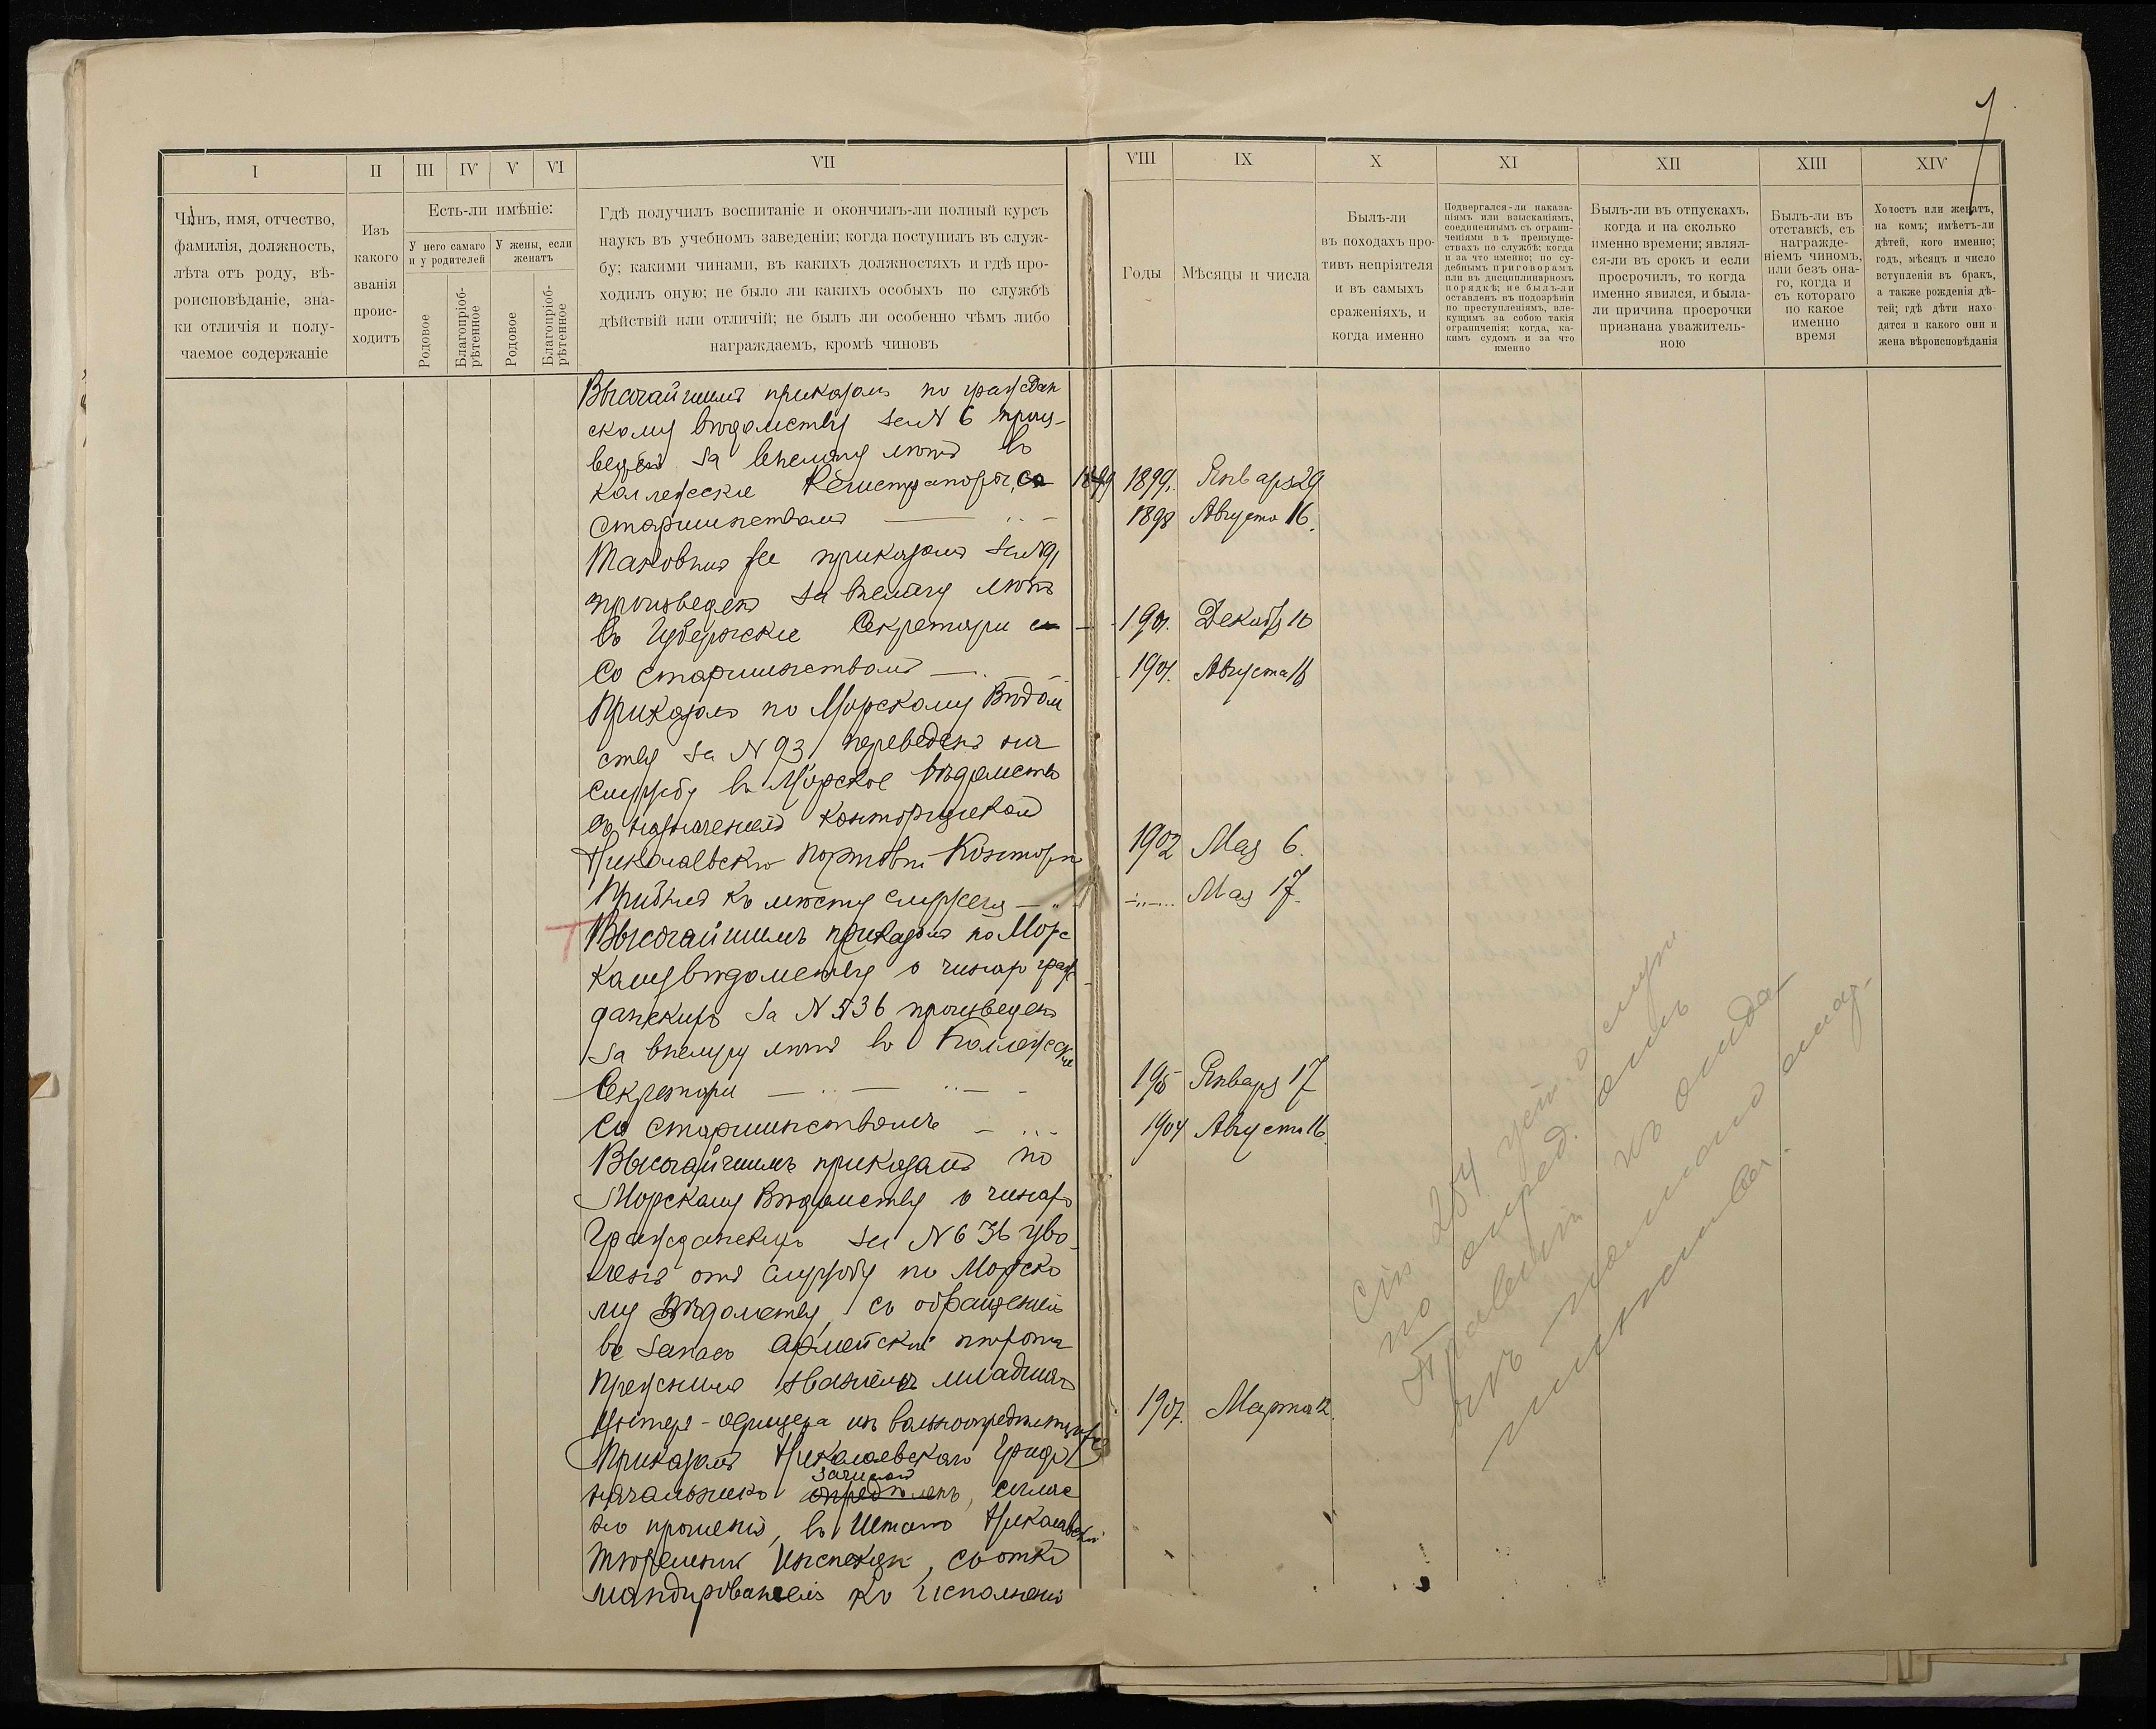 I
II
III
IV
V
VI
VII
VIII
IX
X
XI
XII
XIII
XIV
Чинъ, имя, отчество,
фамилія, должность,
лѣта отъ роду, вѣ-
роисповѣданіе, зна-
ки отличія и полу-
чаемое содержаніе
Изъ
какого
званія
проис-
ходитъ
Есть-ли имѣніе:
У него самаго
и у родителей
У жены, если
женатъ
Родовое
Благопріоб-
рѣтенное
Родовое
Благопріоб-
рѣтенное
Гдѣ получилъ воспитаніе и окончилъ-ли полный курсъ
наукъ въ учебномъ заведеніи; когда поступилъ въ служ-
бу; какими чинами, въ какихъ должностяхъ и гдѣ про-
ходилъ оную; не было ли какихъ особыхъ по службѣ
дѣйствій или отличій; не былъ ли особенно чѣмъ либо
награждаемъ, кромѣ чиновъ
Годы
Мѣсяцы и числа
Былъ-ли
въ походахъ про-
тивъ непріятеля
и въ самыхъ
сраженіяхъ, и
когда именно
Подвергался-ли наказа-
ніямъ или взысканіямъ,
соединеннымъ съ ограни-
ченіями въ преимуще-
ствахъ по службѣ; когда
и за что именно; по су-
дебнымъ приговорамъ
или въ дисциплинарномъ
порядкѣ; не былъ-ли
оставленъ въ подозрѣніи
по преступленіямъ, вле-
кущимъ за собою такія
ограниченія; когда, ка-
кимъ судомъ и за что
именно
Былъ-ли въ отпускахъ,
когда и на сколько
именно времени; являл-
ся-ли въ срокъ и если
просрочилъ, то когда
именно явился, и была-
ли причина просрочки
признана уважитель-
ною
Былъ-ли въ
отставкѣ, съ
награжде-
ніемъ чиномъ,
или безъ она-
го, когда и
съ котораго
по какое
именно
время
Холостъ или женатъ,
на комъ; имѣетъ-ли
дѣтей, кого именно;
годъ, мѣсяцъ и число
вступленія въ бракъ,
а также рожденія дѣ-
тей; гдѣ дѣти нахо-
дятся и какого они и
жена вѣроисповѣданія
Высочайшимъ приказомъ по граждан
скому вѣдомству за N 6 произ-
веденъ за выслугу лѣтъ въ
Коллежскіе Регистраторы, со 1899 1899. Января 29
старшинствомъ 1898 Августа 16.
Таковымъ же приказомъ за N 91
произведенъ за выслугу лѣтъ
въ Губернскіе Секретари 1901. Декабр 10
Со старшинствомъ 1901. Августа 16
Приказомъ по Морскому Вѣдом
ству за N 93 переведенъ на
службу въ Морское вѣдомство
съ назначеніемъ конторщикомъ
Николаевской Портовой Конторы 1902 Мая 6.
Прибылъ къ мѣсту службы Мая 17
Высочайшимъ приказомъ по Морс
кому вѣдомству о чинахъ граж
данскихъ за N 536 произведенъ
за выслугу лѣтъ въ Коллежскіе
Секретари 1905 Января 17
Со старшинствомъ 1904 Августа 16
Высочайшимъ приказомъ по
Морскому Вѣдомству о чинахъ
Гражданскихъ за N 636 уво-
ленъ отъ службы по Морско
му Вѣдомству, съ обращеніемъ
въ запасъ армейской пѣхоты
прежнимъ званіемъ младшаго
Унтеръ-офицера изъ вольноопредѣляющихся 1907. Марта 12.
Приказомъ Николаевскаго Градо
зачисленъ
начальника опредѣленъ, соглас
но прошенія, въ Штатъ Николаевской
Тюремной Инспекціи, съ отко
мандированіемъ къ исполненію